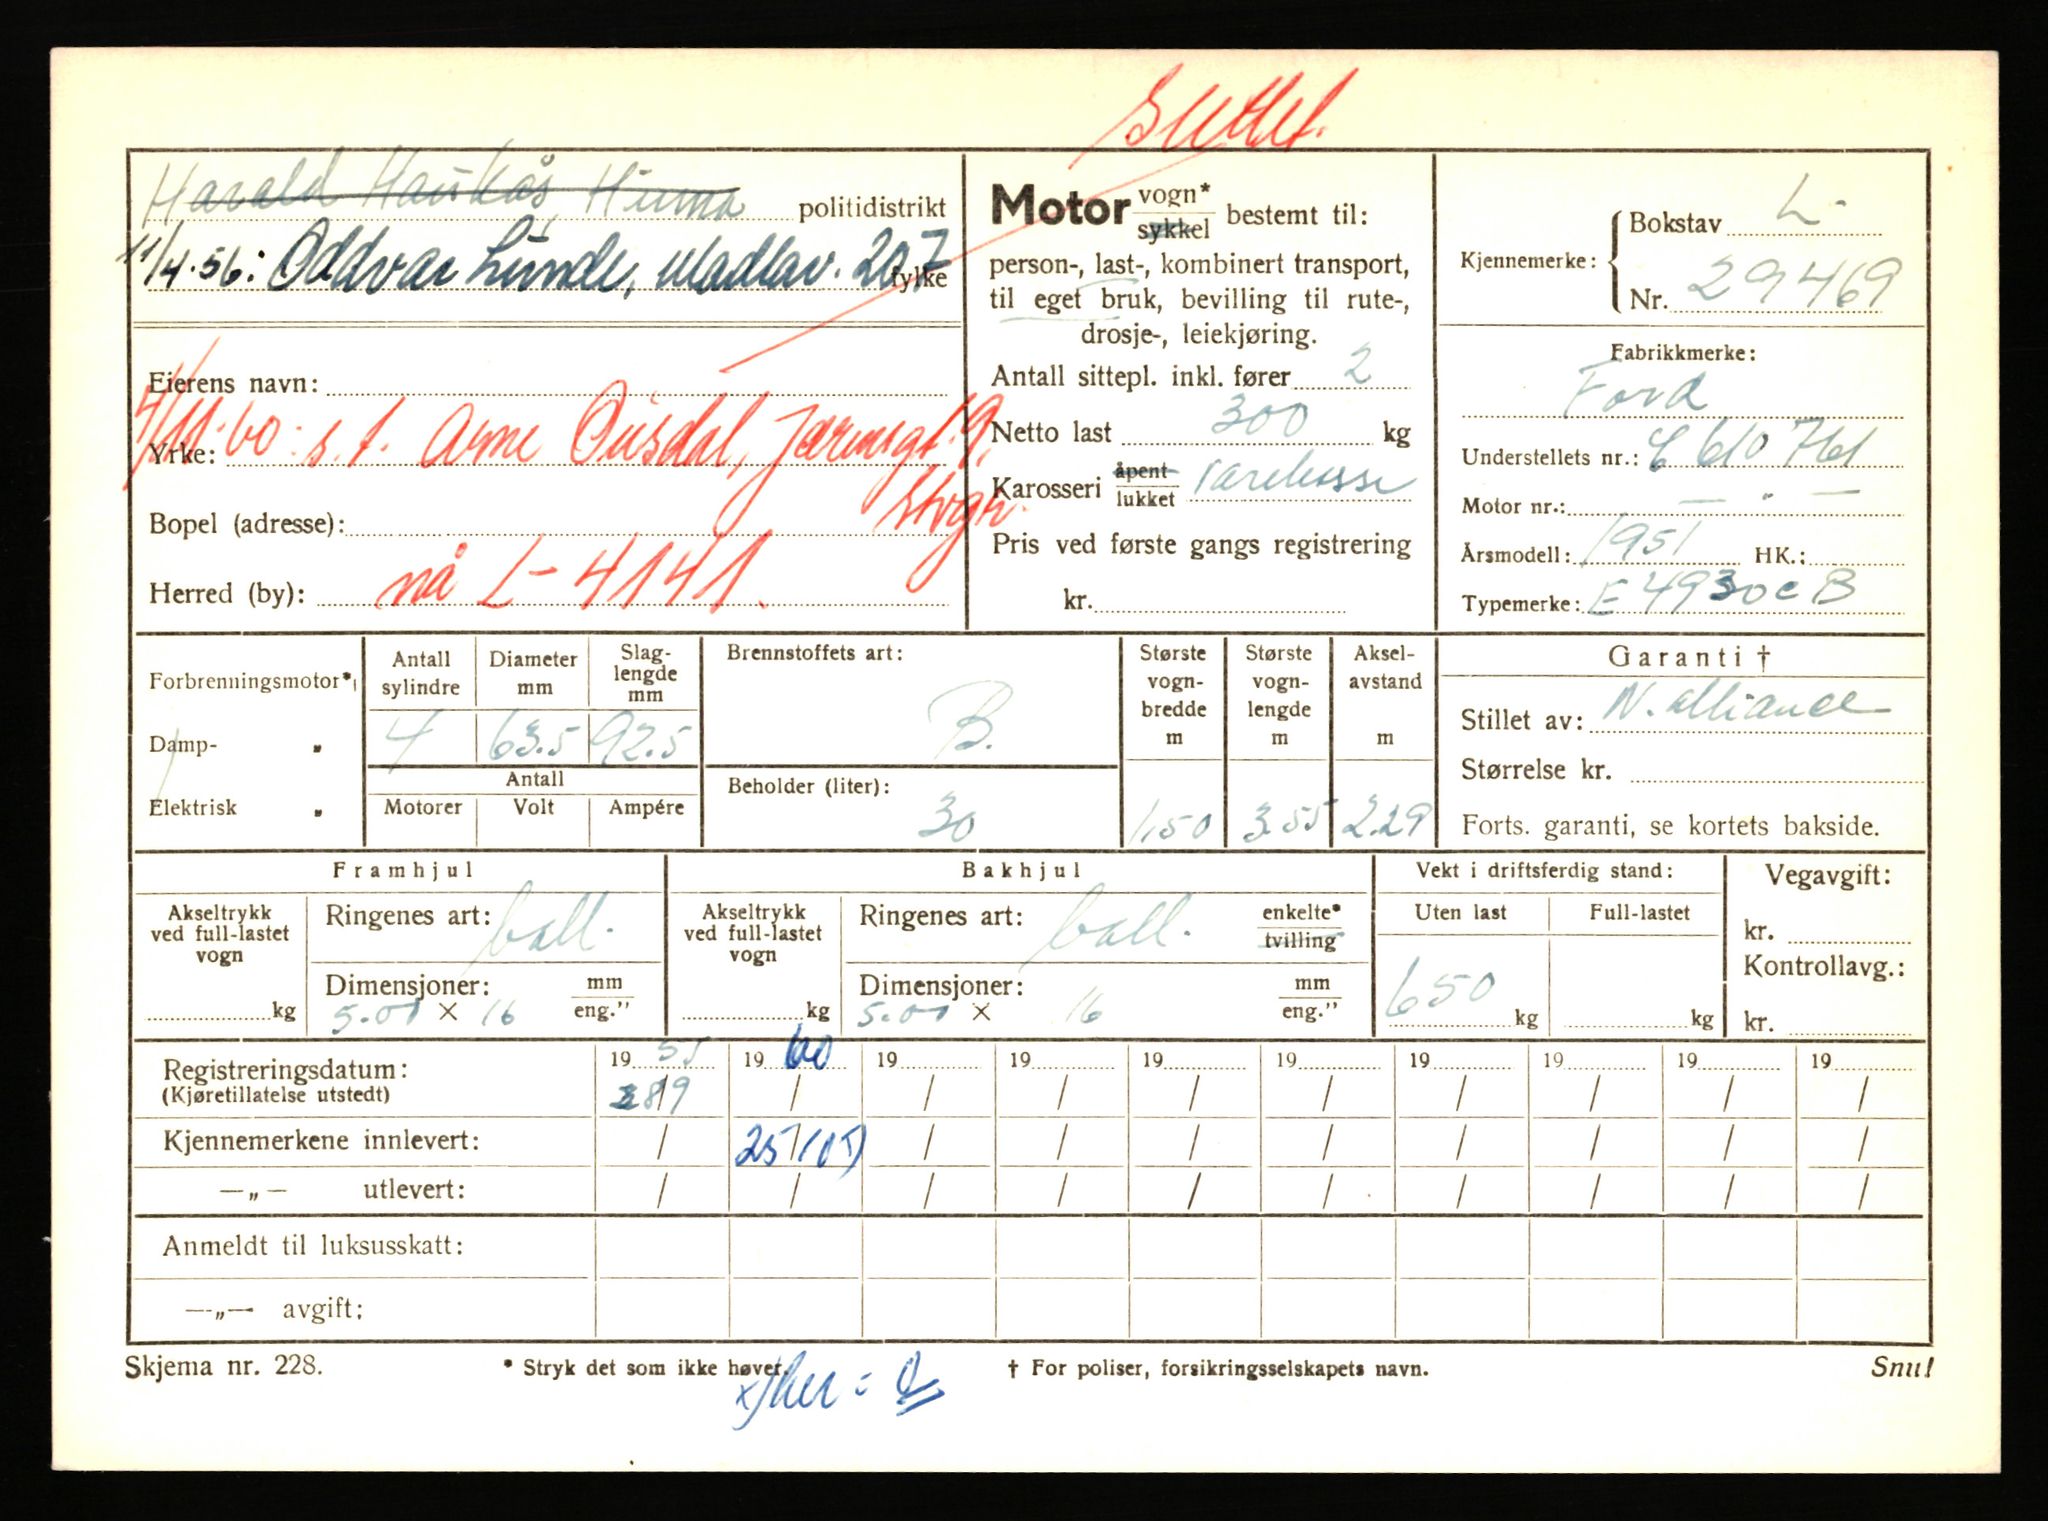 Slettet.
Harald Haukås, Hinna politidistrikt
11/4.56: Oddvar Lunde, Madlav. 207 fylke
Eierens navn:
4/11.60: s.t. Arne Ousdal, Jærensgt. 9,
Yrke:
Stvgr.
Bopel (adresse):
Herred (by): nå L-4141.
Motor vogn* sykkel bestemt til:
person-, last-, kombinert transport,
til eget bruk, bevilling til rute-,
drosje-, leiekjøring.
Antall sittepl. inkl. fører 2
Netto last 300 kg
Karosseri åpent lukket varekasse
Pris ved første gangs registrering
kr.
Kjennemerke: Bokstav L.
Nr. 29469
Fabrikkmerke:
Ford
Understellets nr.: C 610 761
Motor nr.: — " —
Årsmodell: 1951 HK.:
Typemerke: E 4930 C B
Forbrenningsmotor*
Damp- "
Elektrisk "
Antall sylindre
Diameter mm
Slaglengde mm
4 63.5 92.5
Antall
Motorer Volt Ampére
Brennstoffets art:
B.
Beholder (liter):
30
Største vogn-bredde m
1.50
Største vogn-lengde m
3.55
Aksel-avstand m
2.29
Garanti †
Stillet av: N. Alliance
Størrelse kr.
Forts. garanti, se kortets bakside.
Framhjul
Akseltrykk ved full-lastet vogn
kg
Ringenes art: ball.
Dimensjoner: mm eng."
5.00 × 16
Bakhjul
Akseltrykk ved full-lastet vogn
kg
Ringenes art: ball. enkelte* tvilling
Dimensjoner: mm eng."
5.00 × 16
Vekt i driftsferdig stand:
Uten last Full-lastet
650 kg kg
Vegavgift:
kr.
Kontrollavg.:
kr.
Registreringsdatum: 19 55 19 60 19 19 19 19 19 19 19 19
(Kjøretillatelse utstedt) 28/9 / / / / / / / / /
Kjennemerkene innlevert: / 25/10 / / / / / / / /
—„— utlevert: / / / / / / / / / /
Anmeldt til luksusskatt:
—„— avgift:
Skjema nr. 228. * Stryk det som ikke høver. † For poliser, forsikringsselskapets navn. Snu!